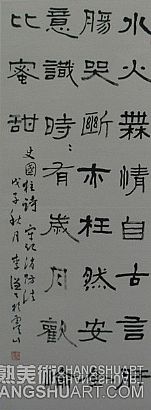 水火無情自古言
腸哭斷亦枉然安
意識時〻有歲月歡
比蜜甜
史國柱詩
戊子秋月李